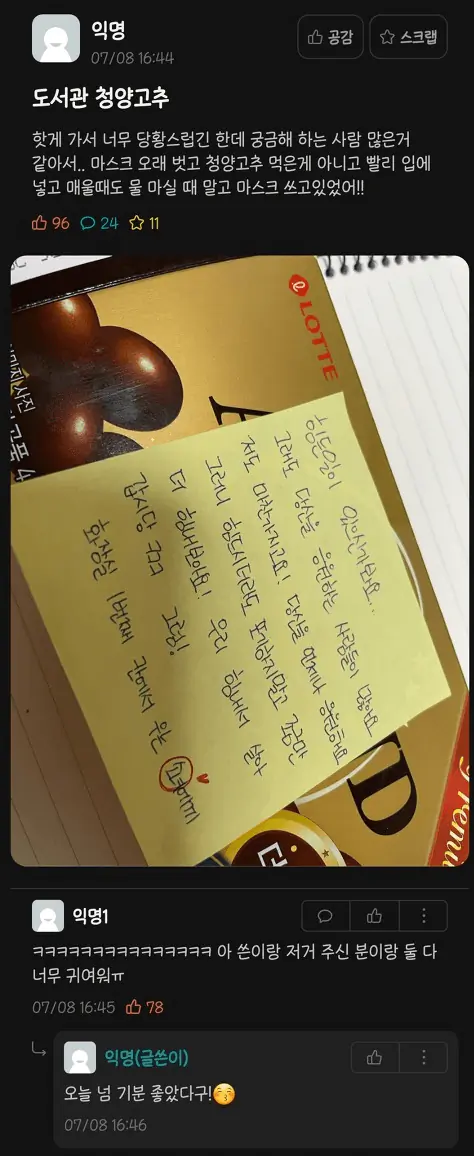 익명
07/08 16:44
공감
스크랩
도서관 청양고추
핫게 가서 너무 당황스럽긴 한데 궁금해 하는 사람 많은거
같아서.. 마스크 오래 벗고 청양고추 먹은게 아니고 빨리 입에
넣고 매울때도 물 마실 때 말고 마스크 쓰고있었어!!
96 24 11
LOTTE
힘든일이 있으신가봐요..
그래도 당신을 응원하는 사람들이 많아요
저도 마찬가지고요! 당신을 언제나 응원해요
그러니 힘드시더라도 포기하지말고 조금만
더 힘내봐요! 우리 힘내서 살아
갑시당
화장실 칸에서
익명1
ㅋㅋㅋㅋㅋㅋㅋㅋㅋㅋㅋㅋㅋㅋㅋ 아 쓴이랑 저거 주신 분이랑 둘 다
너무 귀여워ㅠ
07/08 16:45 78
익명(글쓴이)
오늘 넘 기분 좋았다구!😚
07/08 16:46